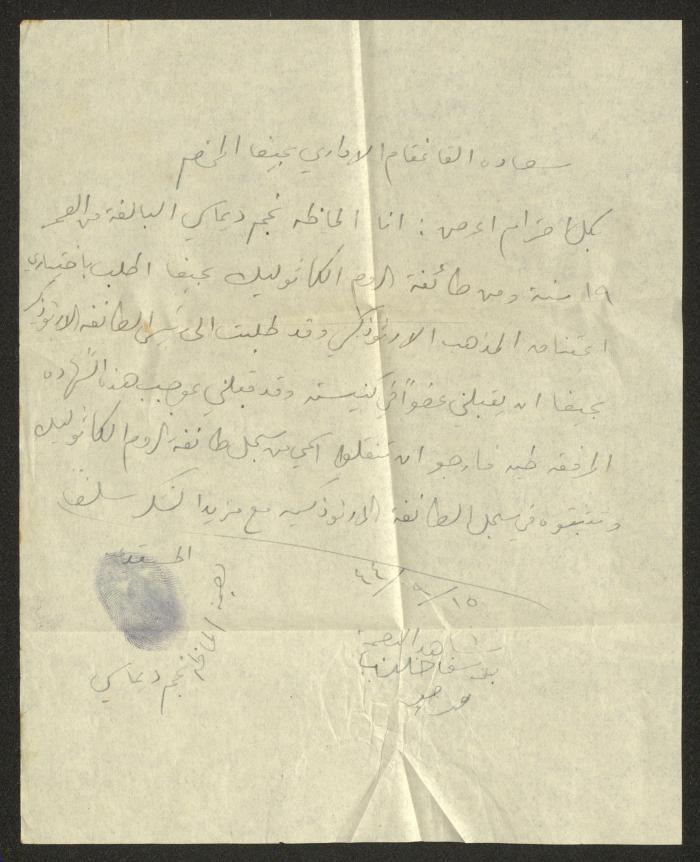 سعادة القائمقام الاداري بحيفا الافخم
بكل احترام اعرض : انا الماظه نجم ديماسي البالغة من العمر
١٩ سنة ومن طائفة الروم الكاثوليك بحيفا اطلب باختياري
اعتناق المذهب الارثوذكسي وقد طلبت الى رئيس الطائفة الارثوذكسية
بحيفا ان يقبلني عضواً في كنيسته وقد قبلني بموجب هذه الشهاده
المرفقه طيه فارجو ان تنقلوا اسمي من سجل طائفة الروم الكاثوليك
وتثبتوه في سجل الطائفة الارثوذكسيه مع مزيد الشكر سلفا
١٥/٩/٤٤
بصمة الماظه
نجم ديماسي
شاهد البصمة